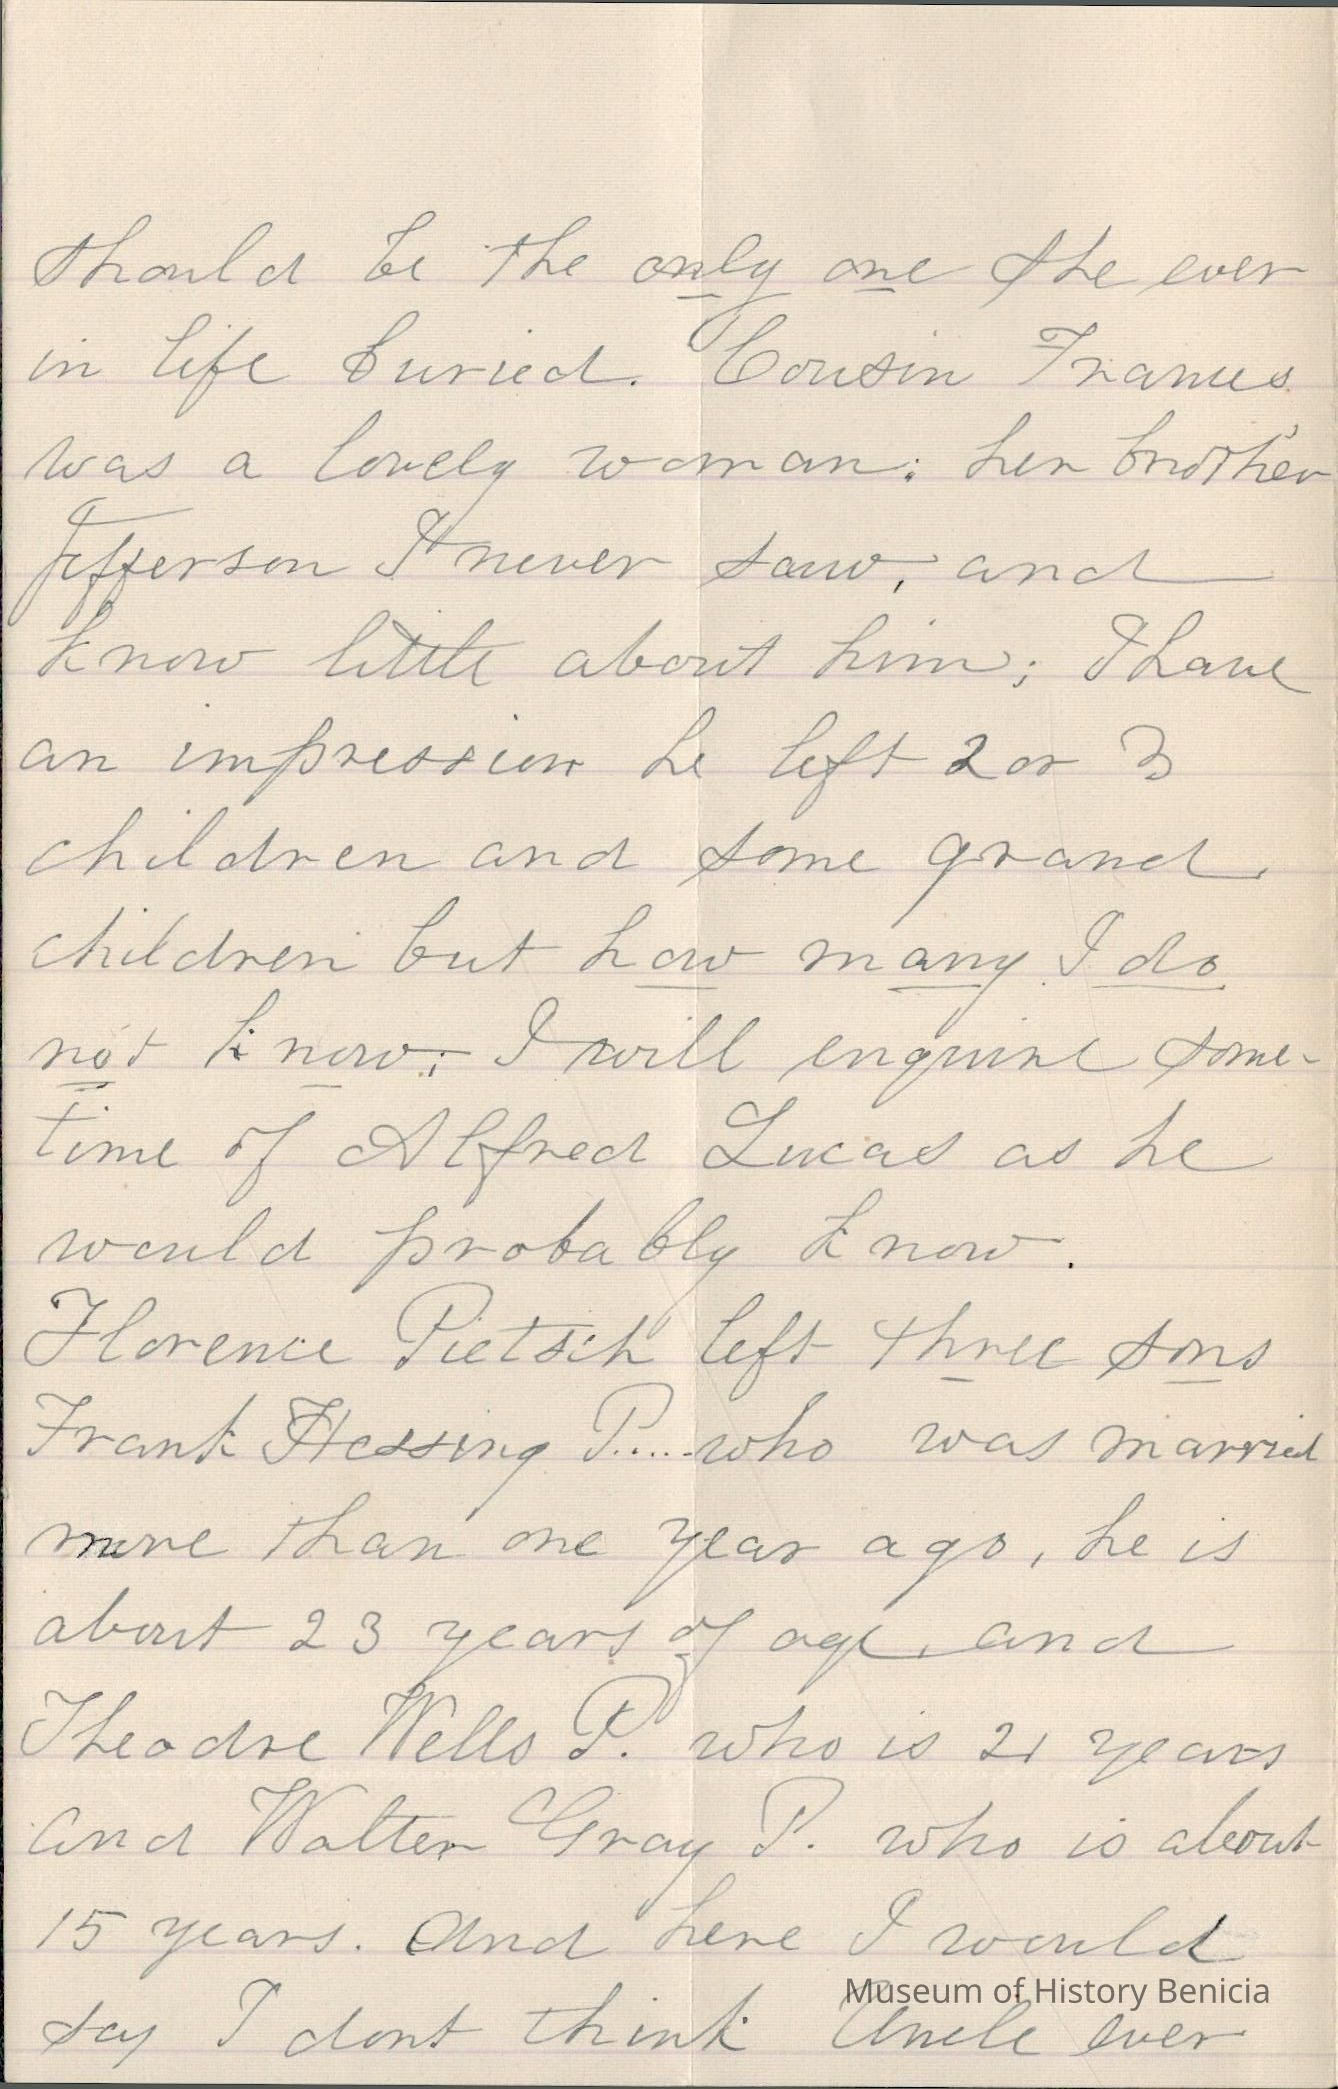 should be the only one she ever
in life buried. Cousin Frances
was a lovely woman: her brother
Jefferson I never saw, and
know little about him; I have
an impression he left 2 or 3
children and some grand
children but how many I do
not know; I will enquire some-
time of Alfred Lucas as he
would probably know.
Florence Pietsch left three sons
Frank Hessing P..... who was married
more than one year ago, he is
about 23 years of age, and
Theodre Wells P. who is 21 years
and Walter Gray P. who is about
15 years. And here I would
Museum of History Benicia
say I dont think Uncle ever